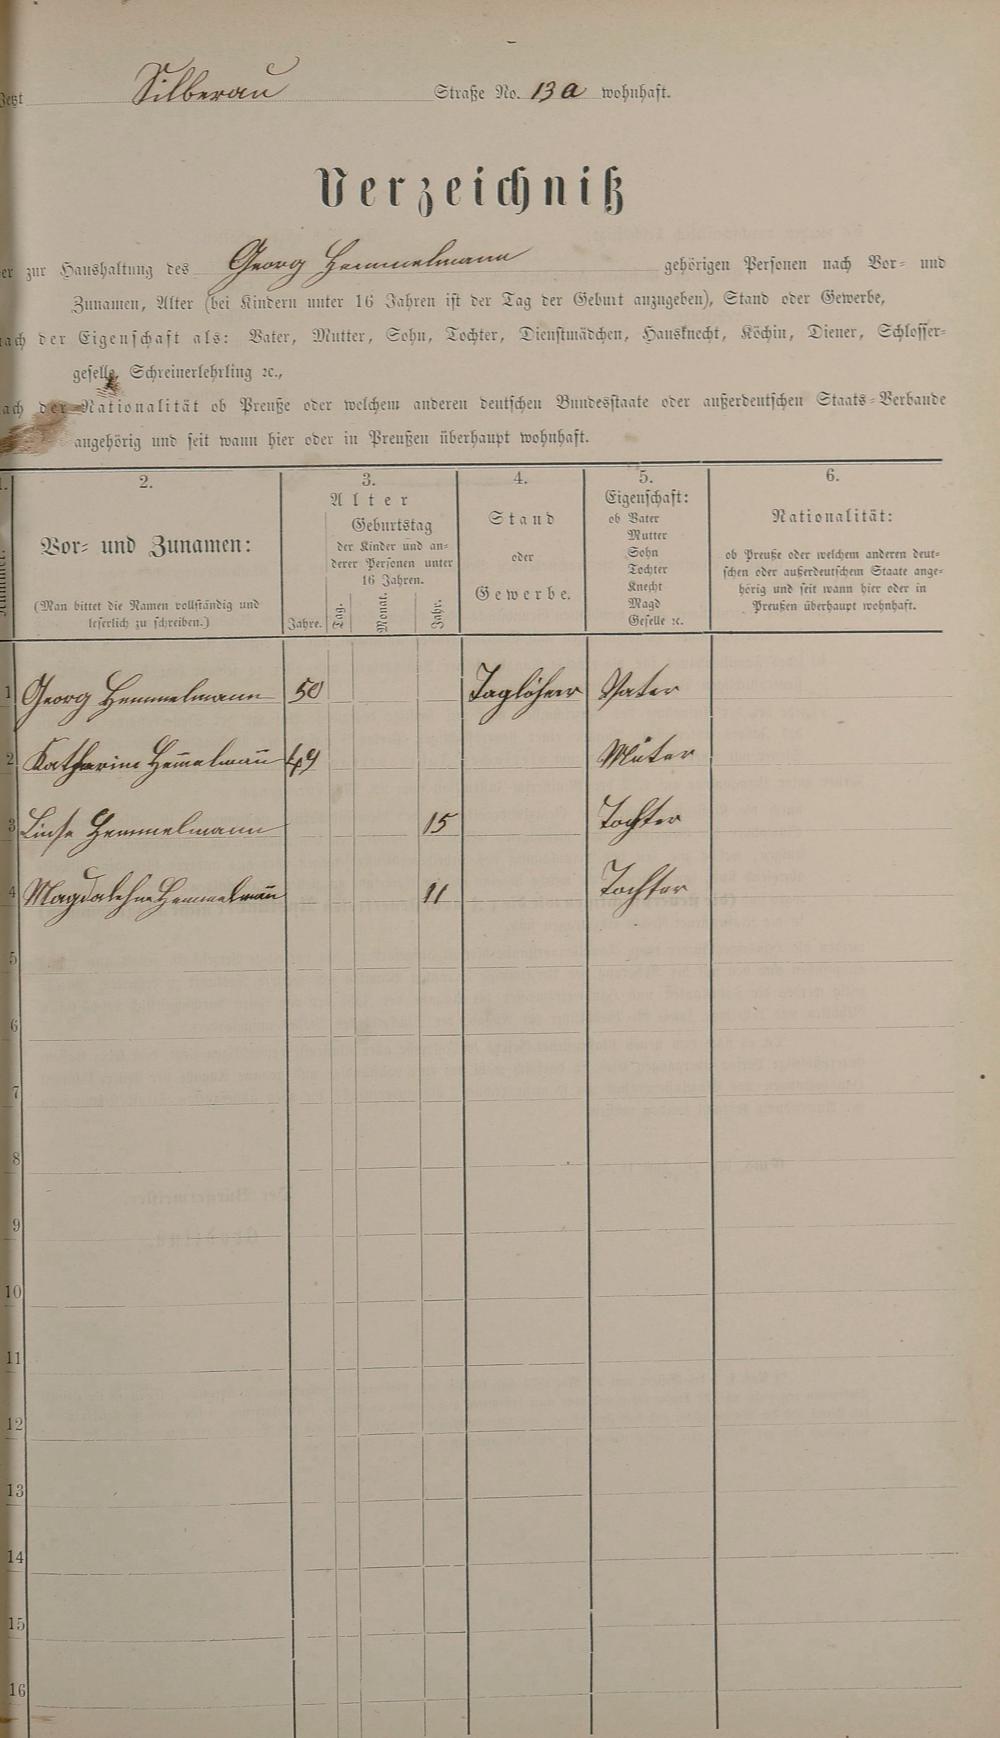 Jetzt Silberau Straße No. 13 a wohnhaft.
Verzeichniß
er zur Haushaltung des Georg Hemmelmann gehörigen Personen nach Vor- und
Zunamen, Alter (bei Kindern unter 16 Jahren ist der Tag der Geburt anzugeben), Stand oder Gewerbe,
ach der Eigenschaft als: Vater, Mutter, Sohn, Tochter, Dienstmädchen, Hausknecht, Köchin, Diener, Schlosser-
geselle, Schreinerlehrling ꝛc.,
ach der Nationalität ob Preuße oder welchem anderen deutschen Bundesstaate oder außerdeutschen Staats-Verbande
angehörig und seit wann hier oder in Preußen überhaupt wohnhaft.
1. 2. 3. 4. 5. 6.
Vor- und Zunamen:
(Man bittet die Namen vollständig und
leserlich zu schreiben.)
Alter
Jahre.
Geburtstag
der Kinder und an-
derer Personen unter
16 Jahren.
Tag. Monat. Jahr.
Stand
oder
Gewerbe.
Eigenschaft:
ob Vater
Mutter
Sohn
Tochter
Knecht
Magd
Geselle ꝛc.
Nationalität:
ob Preuße oder welchem anderen deut-
schen oder außerdeutschem Staate ange-
hörig und seit wann hier oder in
Preußen überhaupt wohnhaft.
1 Georg Hemmelmann 50 Taglöhner Vater
2 Katharina Hem̅elman̅ 49 Muter
3 Hemmelmann 15 Tochter
4 Magdalehna Hemmelman̅ 11 Tochter
5
6
7
8
9
10
11
12
13
14
15
16